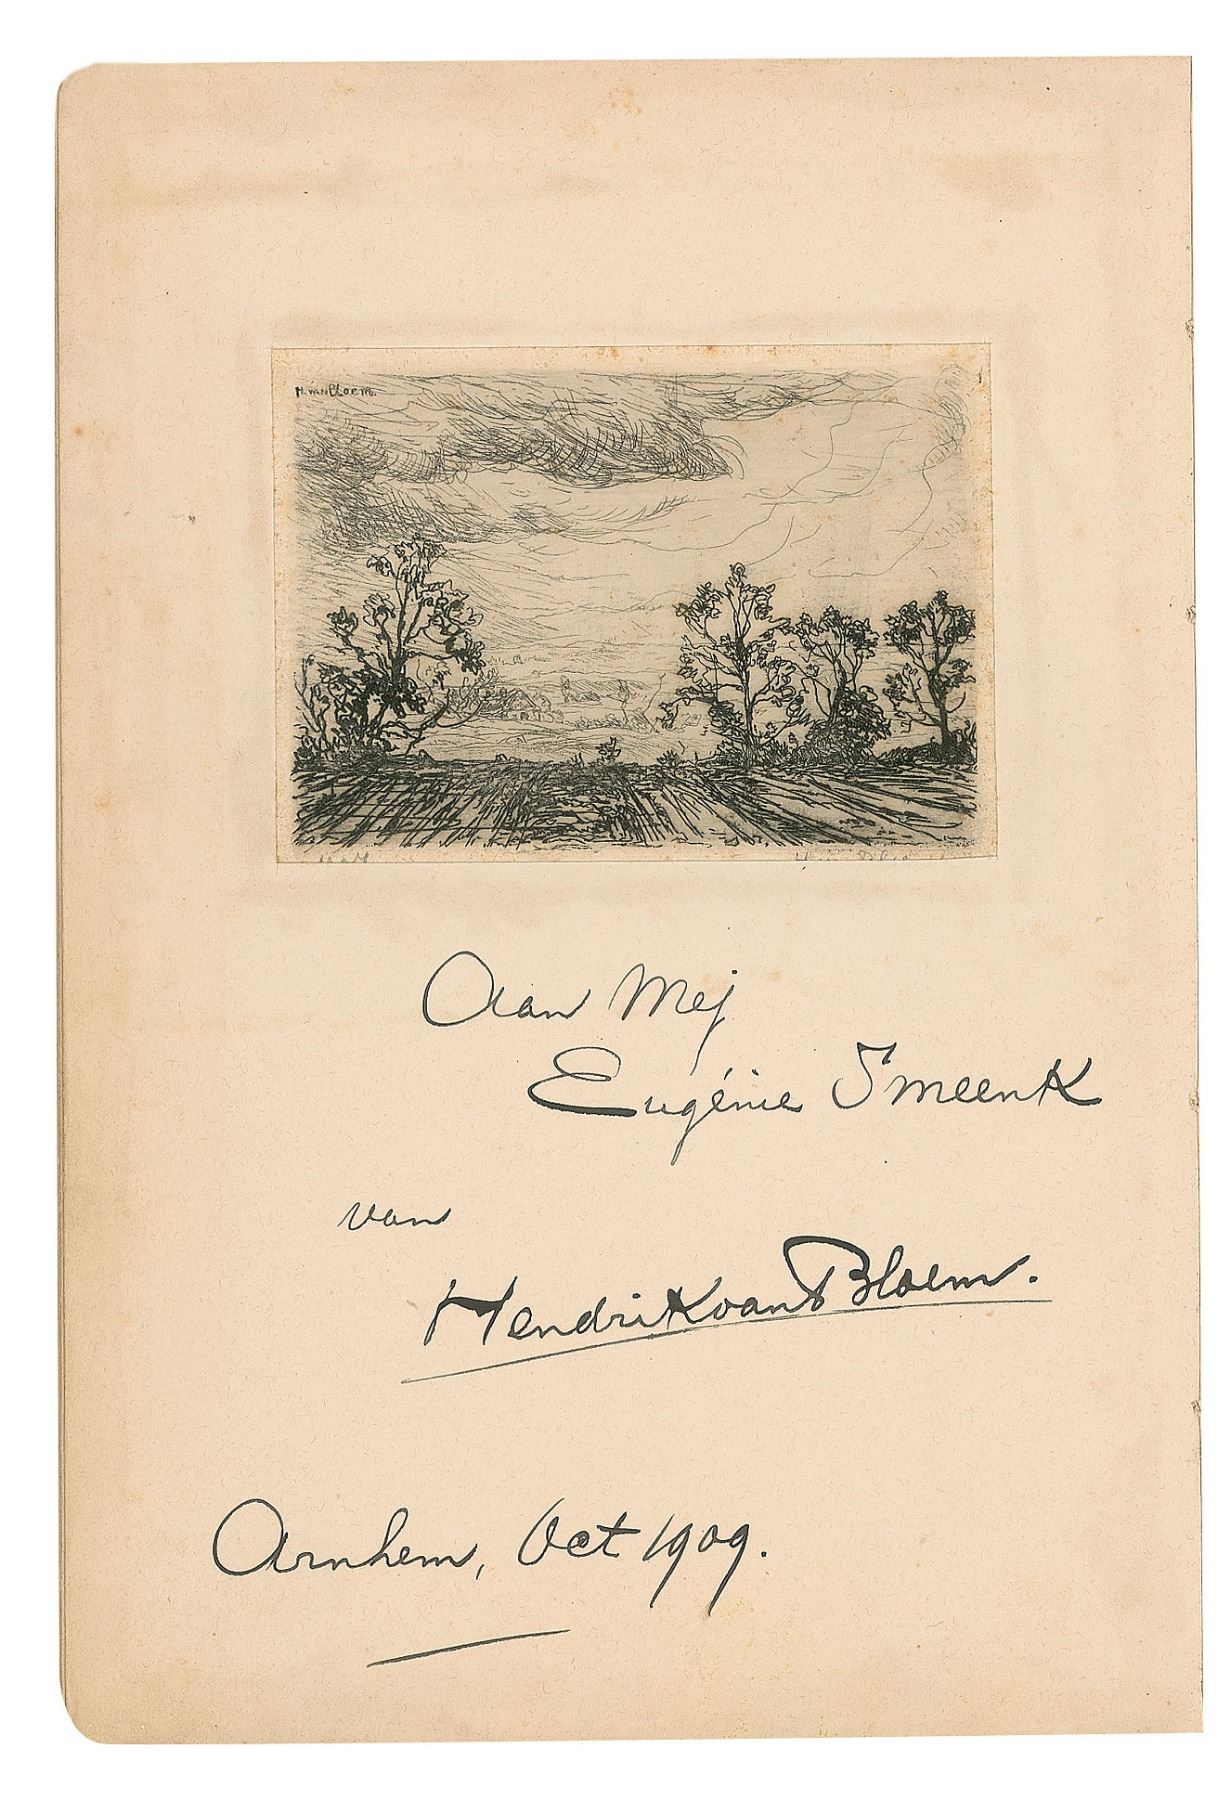 H. VAN BLOEM.
Aan Mej
Eugénie Smeenk
van
Hendrik van Bloem.
Arnhem, Oct 1909.